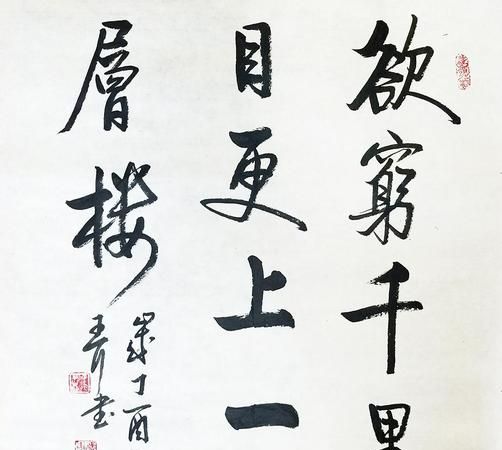 欲窮千里
目更上一
層楼
歲丁酉
書